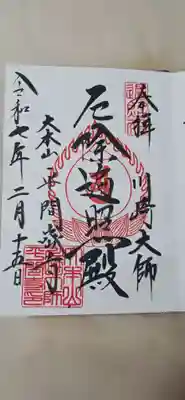 奉拝 川崎大師
厄除遍照殿
大本山 平間寺
令和七年二月十五日